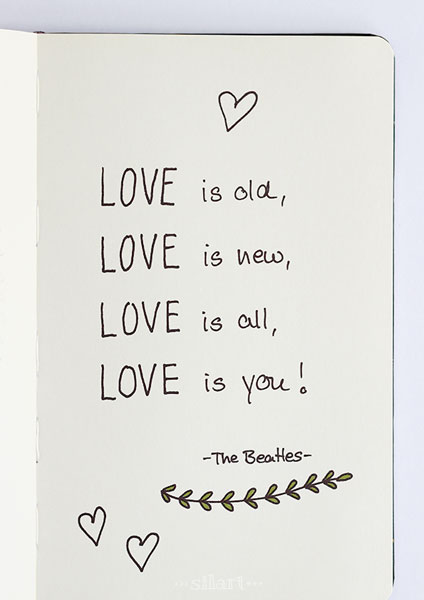 LOVE is old,
LOVE is new,
LOVE is all,
LOVE is you!
-The Beatles-
···silart···